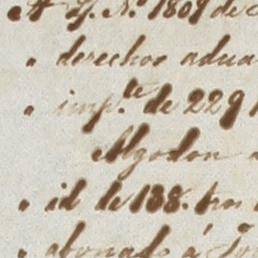 N.º 1809 de
" derechos adua
" imp.te de 229
Algodon
" id de 188.
" abonado á